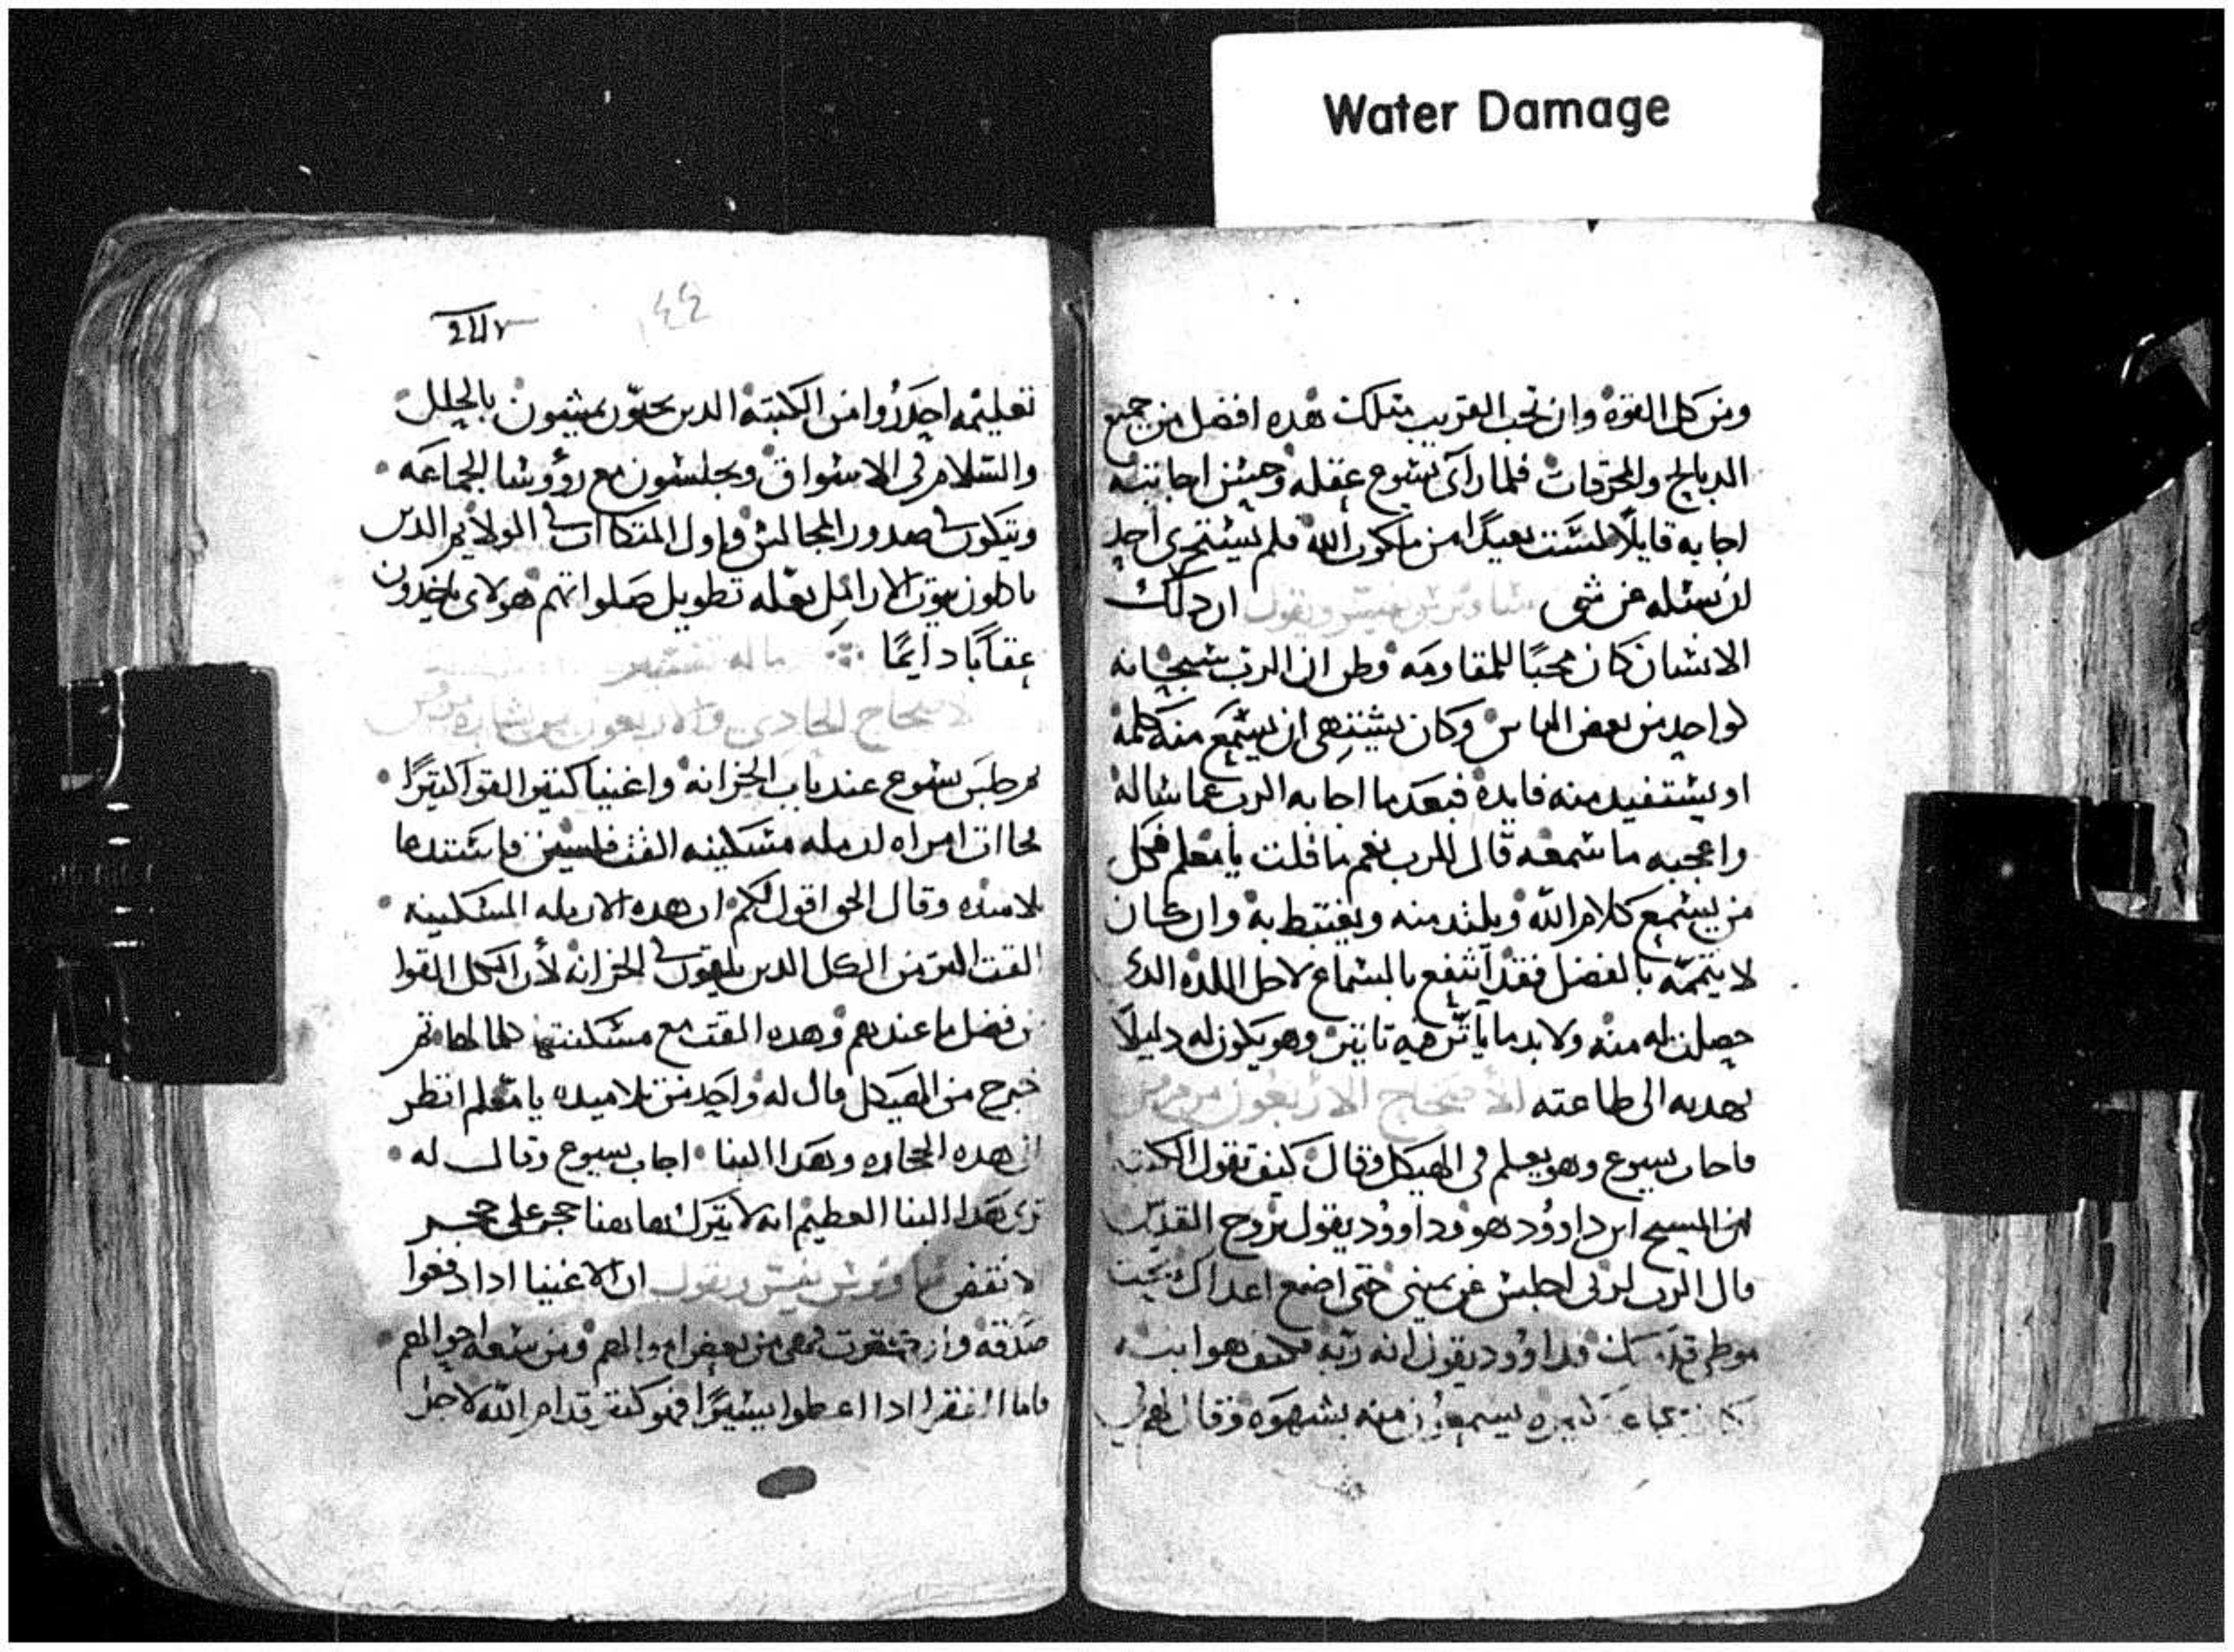 Water Damage
ومن كل القوة وان تحب القريب مثلك هده افضل من جميع
الدبايح والمحرقات فلما رآى يسوع عقله وحسن اجابته
اجابه قايلًا لست بعيدًا من ملكوت الله فلم يستجرى احد
ان يسئله عن شى ساويرس يفسر ويقول ان دلك
الانسان كان محبًا للمقاومه وظن ان الرب سبحانه
كواحد من بعض الناس وكان يشتهى ان يسمع منه كلمه
او يستفيد منه فايدة فبعدما اجابه الرب عما ساله
واعجبه ما سمعه قال للرب نعم ما قلت يا معلم فكل
من يسمع كلام الله ويلتد منه ويغتبط به وان كان
لا يتممه بالفضل فقد انتفع بالسماع لاجل اللده الدى
حصلت له منه ولا بد ما يأثر فيه تاثير وهو يكون له دليلًا
يهديه الى طاعته الاصحاح الاربعون من مرقس
فاجاب يسوع وهو يعلم فى الهيكل وقال كيف تقول الكتبه
ان المسيح ابن داوود هو وداوود يقول بروح القدس
قال الرب لربى اجلس عن يمينى حتى اضع اعداك تحت
موطى قدميك فداوود يقول انه ربه فكيف هو ابنه
كانت جماعه كثيره يسمعون منه بشهوه وقال لهم فى
٢٤٣
١٤٤
تعليمه احدروا من الكتبة الدين يحبون يمشون بالحلل
والسلام فى الاسواق ويجلسون مع رؤوسا الجماعه
ويتكون فى صدور المجالس واول المتكاات فى الولايم الدين
ياكلون بيوت الارامل بعله تطويل صلواتهم هولاى ياخدون
عقابًا دايمًا ما له تفسير
الاصحاح الحادى والاربعون من بشاره مرقس
ثم جلس يسوع عند باب الخزانه واغنيا كتير القوا كتيرًا
فجاات امراه ارمله مسكينه القت فلسين فاستدعا
تلاميده وقال الحق اقول لكم ان هده الارمله المسكينه
القت اكتر من الكل الدين يلقون فى الخزانه لأن الكل القوا
من فضل ما عندهم وهده القت مع مسكنتها كلما لها ثم
خرج من الهيكل قال له واحد من تلاميده يا معلم انظر
الى هده الحجاره وهدا البنا اجاب يسوع وقال له
ترى هدا البنا العظيم انه لا يترك هاهنا حجر على حجر
لا نقض ساويرس يفسر ويقول ان الاغنيا ادا دفعوا
صدقه وان كترت فهى من بعض اموالهم ومن سعه احوالهم
فاما الفقرا ادا اعطوا يسيرًا فهو كتير قدام الله لاجل